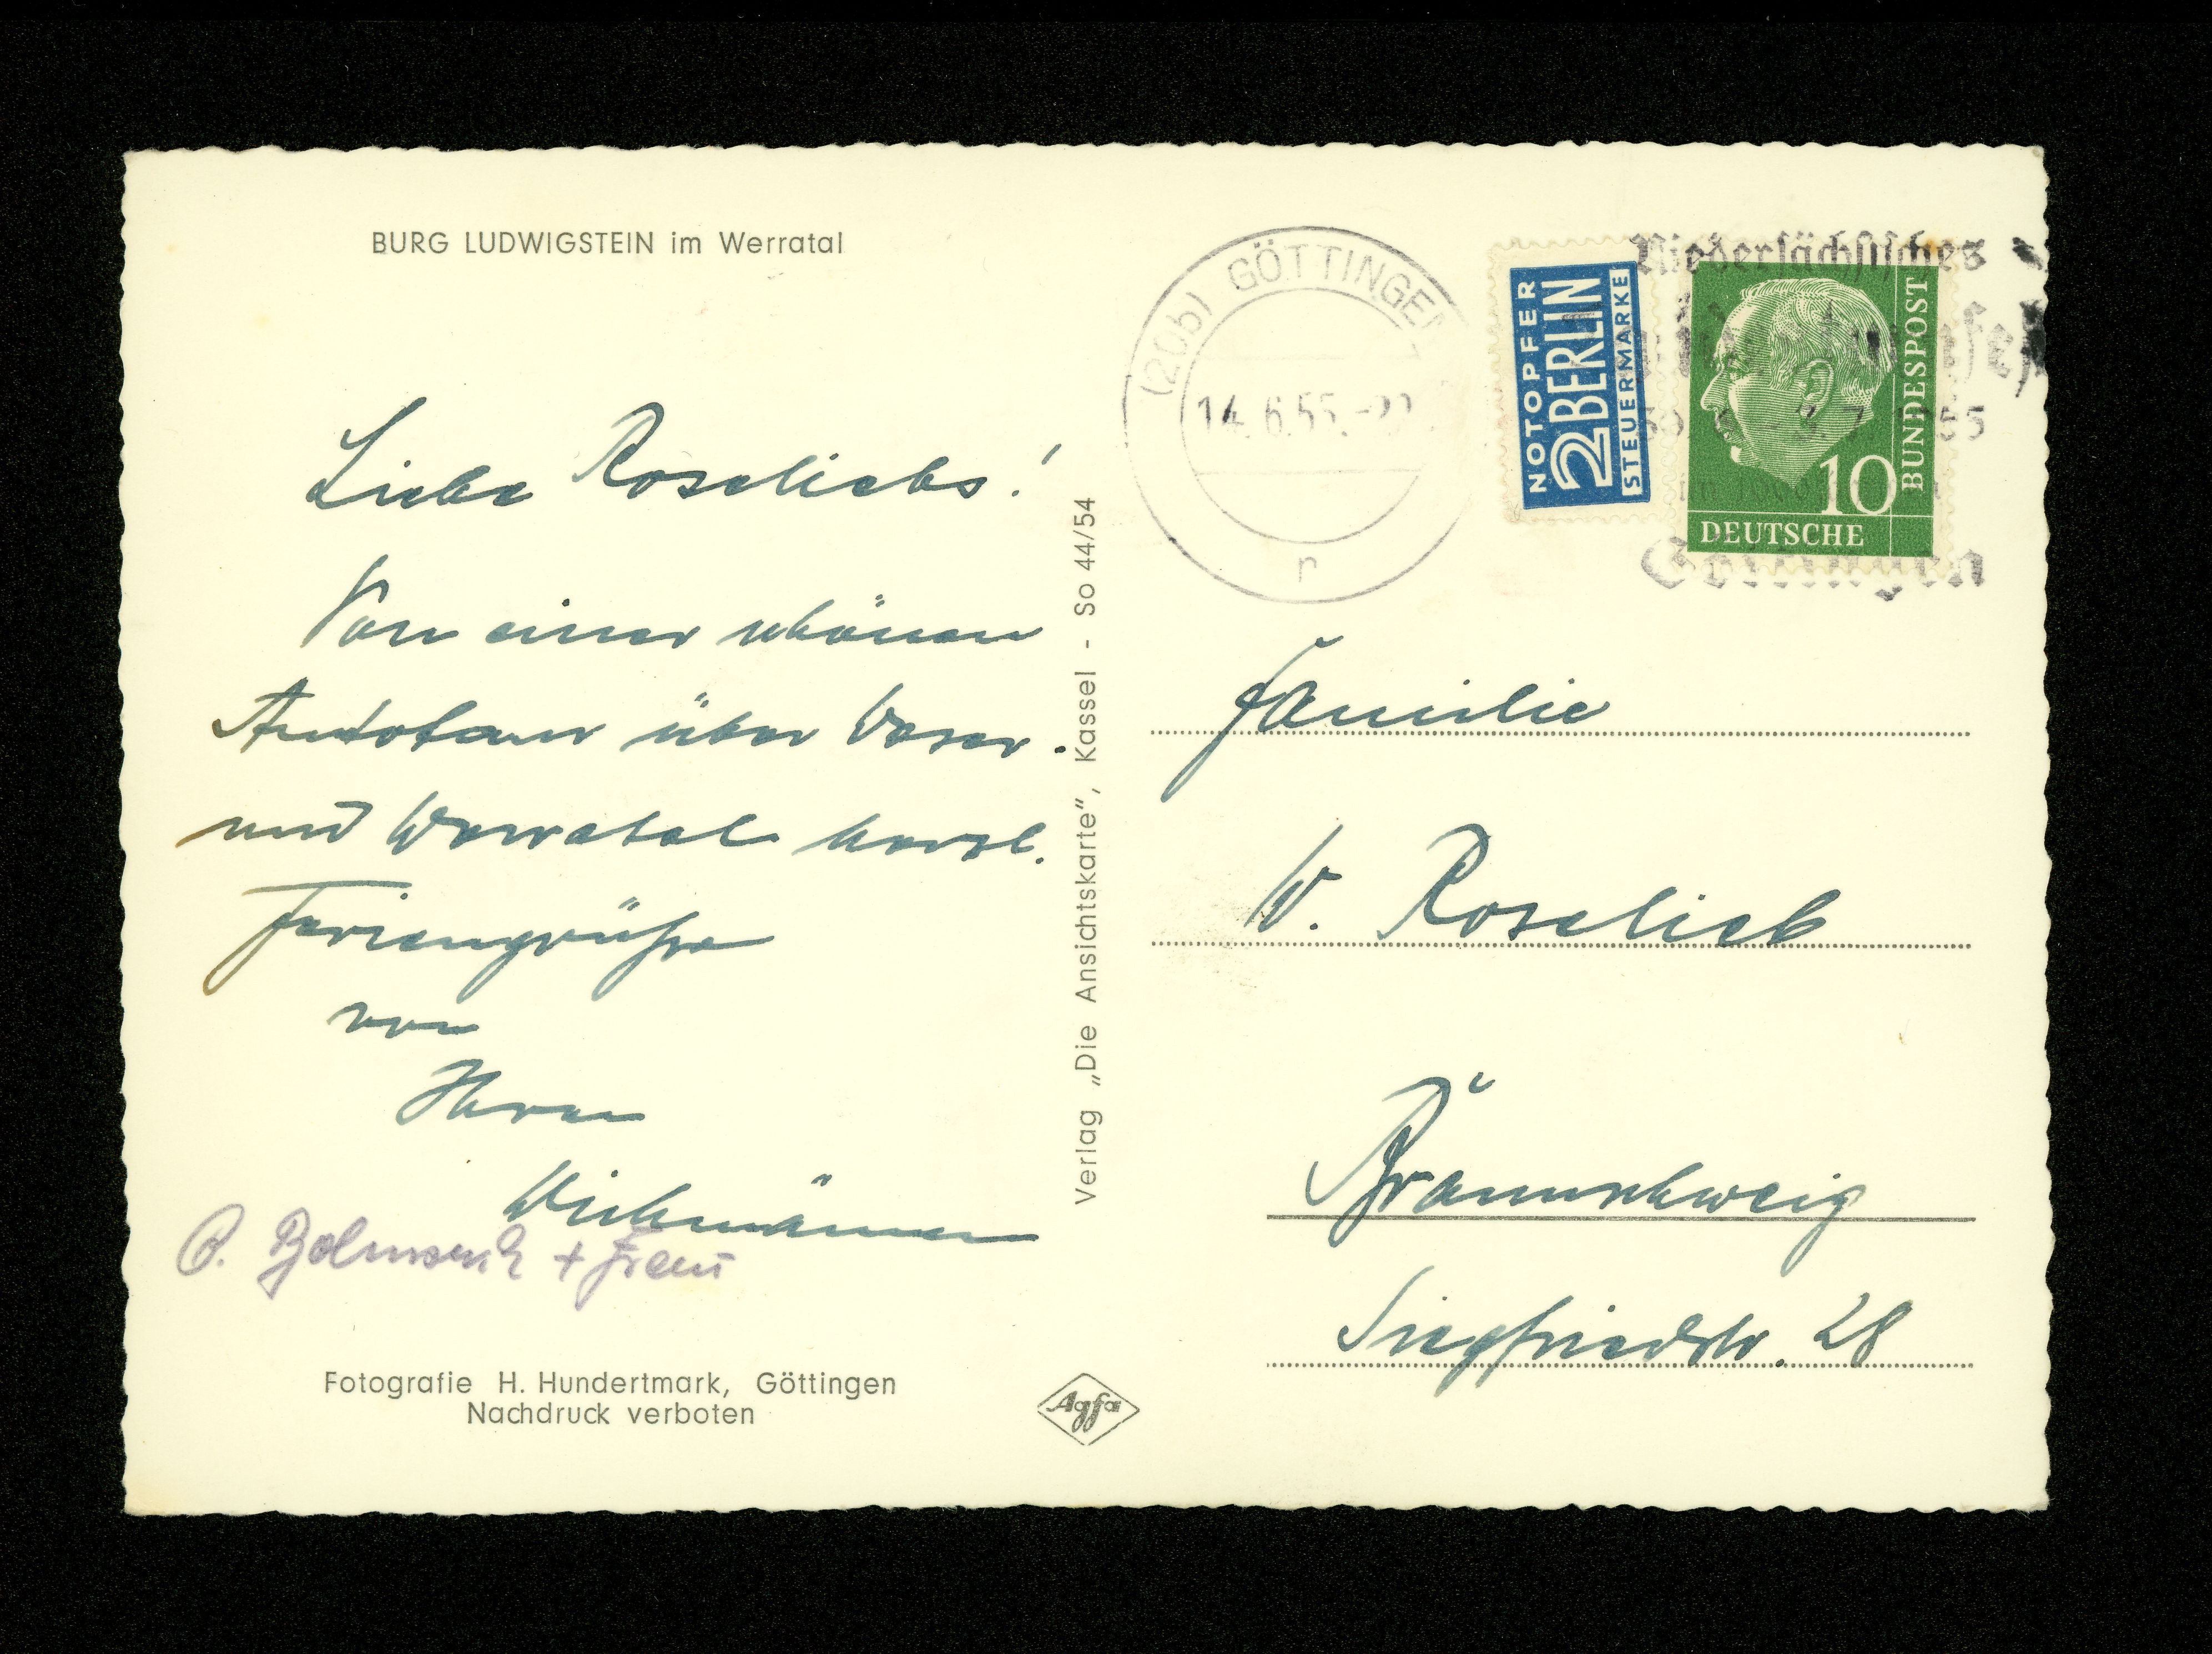 BURG LUDWIGSTEIN im Werratal
Liebe Roseliebs!
Von einer schönen
Autotour über Weser-
und Werratal herzl.
Feriengrüße
von
Ihren
Wichmännern
+ Frau
Fotografie H. Hundertmark, Göttingen
Nachdruck verboten
Verlag „Die Ansichtskarte", Kassel - So 44/54
Agfa
(20b) GÖTTINGEN
14.6.55.
r
NOTOPFER
2 BERLIN
STEUERMARKE
Niedersächsisches
1955
Göttingen
10
DEUTSCHE
BUNDESPOST
Familie
W. Roselieb
Braunschweig
Siegfriedstr. 28